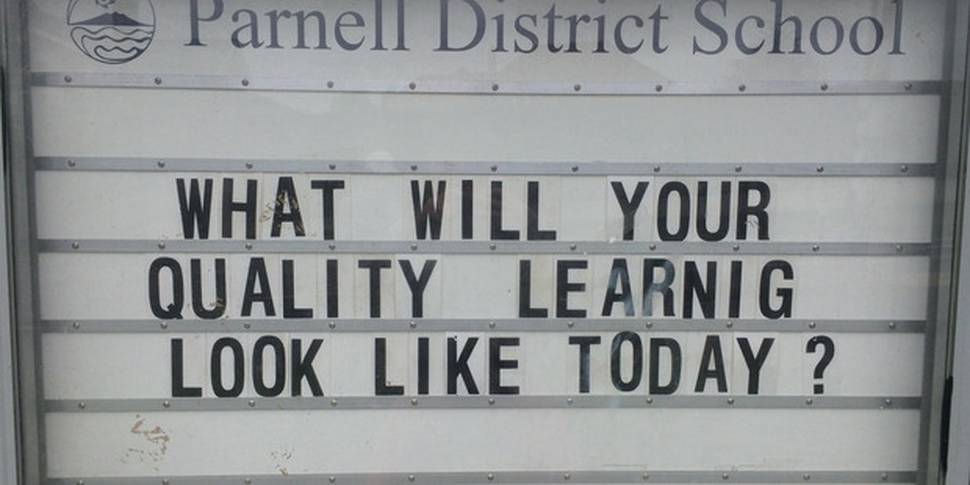 Parnell District School
WHAT WILL YOUR
QUALITY LEARNIG
LOOK LIKE TODAY ?